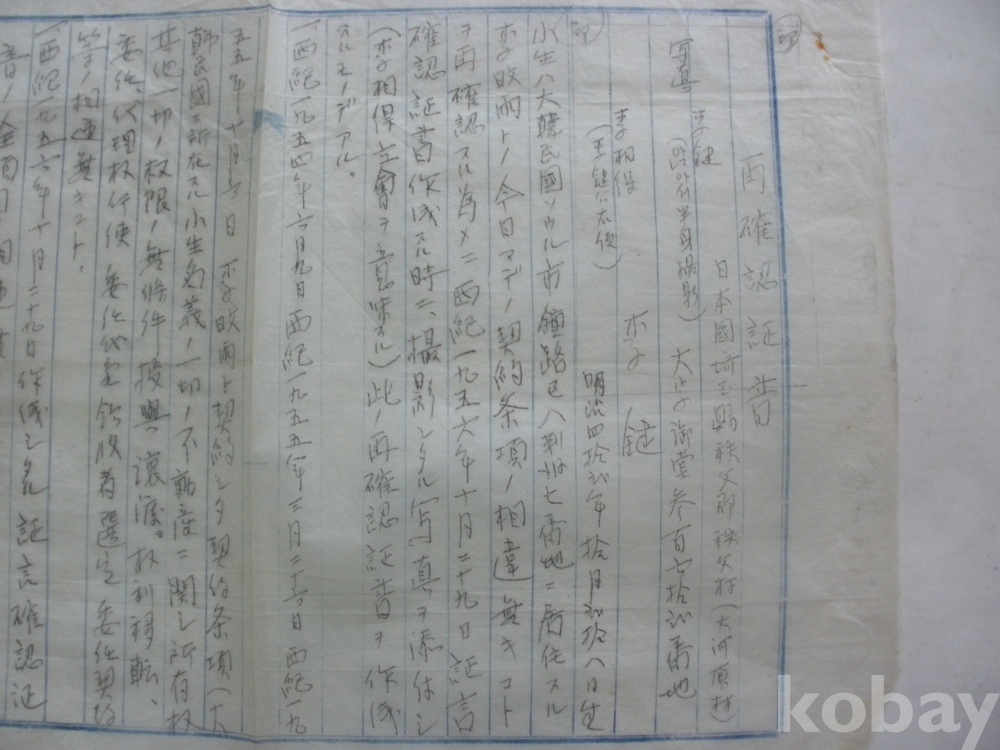 印
再確認証書
日本國埼玉縣秩父郡秩父村(大河原村)
大字御堂参百六拾弐番地
写真 李鍵
李相得
(李鍵公太使)
李鍵
明治四拾弐年拾月弐拾八日生
印
小生ハ大韓民國ソウル市鍾路区八判洞七番地ニ居住スル
李旼雨トノ今日マデノ契約条項ノ相違無キコト
ヲ再確認スル為メニ西紀一九五六年十月二十九日証言
確認証書作成スル時ニ、撮影シタル写真ヲ添付シ
(李相得立會ヲ意味スル)此ノ再確認証書ヲ作成
スルモノデアル。
一、西紀一九五四年六月九日西紀一九五五年三月二十六日西紀一九
五五年十月六日李旼雨ト契約シタ契約条項(大
韓民國ニ所在スル小生名義ノ一切ノ不動産ニ関シ所有权
其他一切ノ权限ノ無條件授與、讓渡。权利移転、
委任、代理权行使委任状金領收者選定委任契約
等ノ相違無キコト。
一、西紀一九五六年十月二十九日作成シタル証言確認証
書ノ全面
kobay